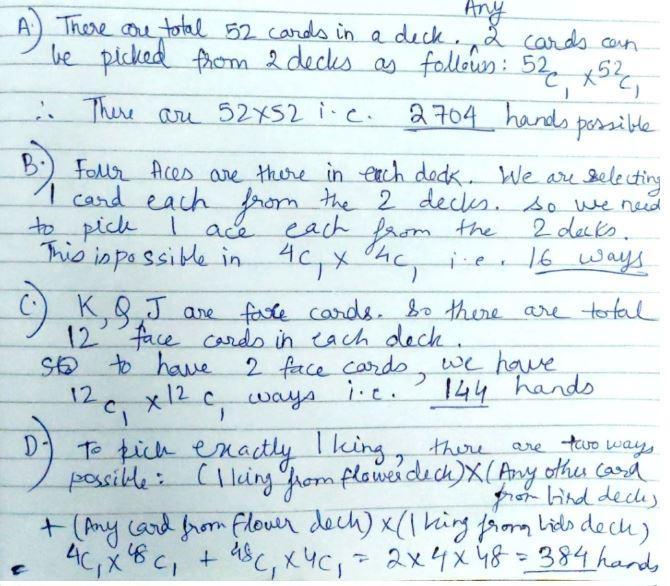 Any
A.) There are total 52 cards in a deck. 2 cards can
be picked from 2 decks as follows: 52C₁ x 52C₁
∴ There are 52x52 i.e. 2704 hands possible
B.) Four Aces are there in each deck. We are selecting
1 card each from the 2 decks. So we need
to pick 1 ace each from the 2 decks.
This is possible in 4C₁ x 4C₁ i.e. 16 ways
C.) K, Q, J are face cards. So there are total
12 face cards in each deck.
to have 2 face cards, we have
12C₁ x 12C₁ ways i.e. 144 hands
D.) To pick exactly 1 king, there are two ways
possible: (1 king from flower deck) X (Any other card
from bird deck)
+ (Any card from flower deck) x (1 king from bids deck)
= 4C₁ x 48C₁ + 48C₁ x 4C₁ = 2x4x48 = 384 hands